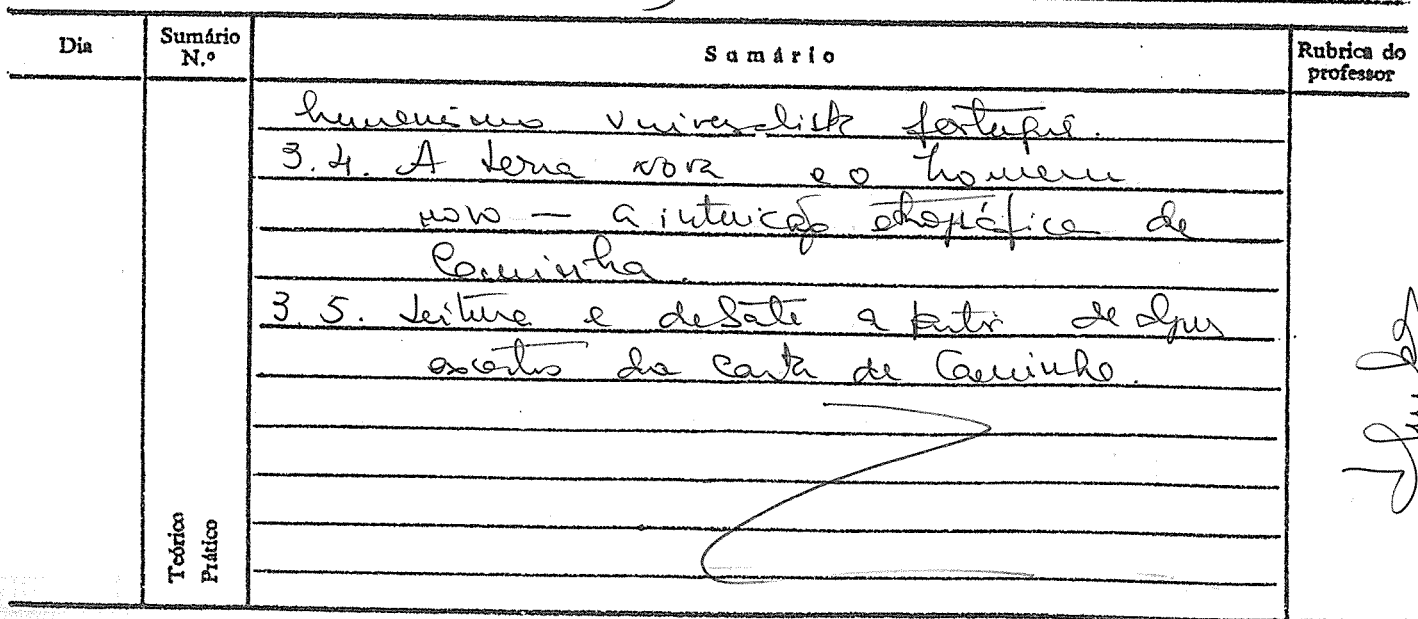 Dia
Sumário
N.º
Sumário
Rubrica do
professor
humanismo universalista português.
3.4. A terra nova e o homem
novo — a intuição etnográfica de
Caminha.
3.5. Leitura e debate a partir de alguns
excertos da carta de Caminha.
Teórico
Prático